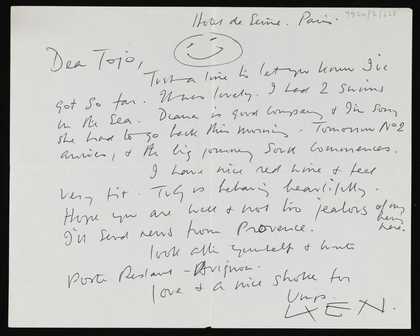 Hotel de Seine. Paris.
Dear Tojo,
Just a line to let you know I've
got so far. It was lovely. I had 2 swims
in the sea. Deana is good company & I'm sorry
she had to go back this morning. Tomorrow No 2
arrives, & the big journey South commences.
I have nice red wine & feel
very fit. is behaving beautifully.
Hope you are well & not too jealous of my
being here.
I'll send news from Provence.
Look after yourself & write
Poste Restante - Avignon.
love & a nice stroke for
LXEN.